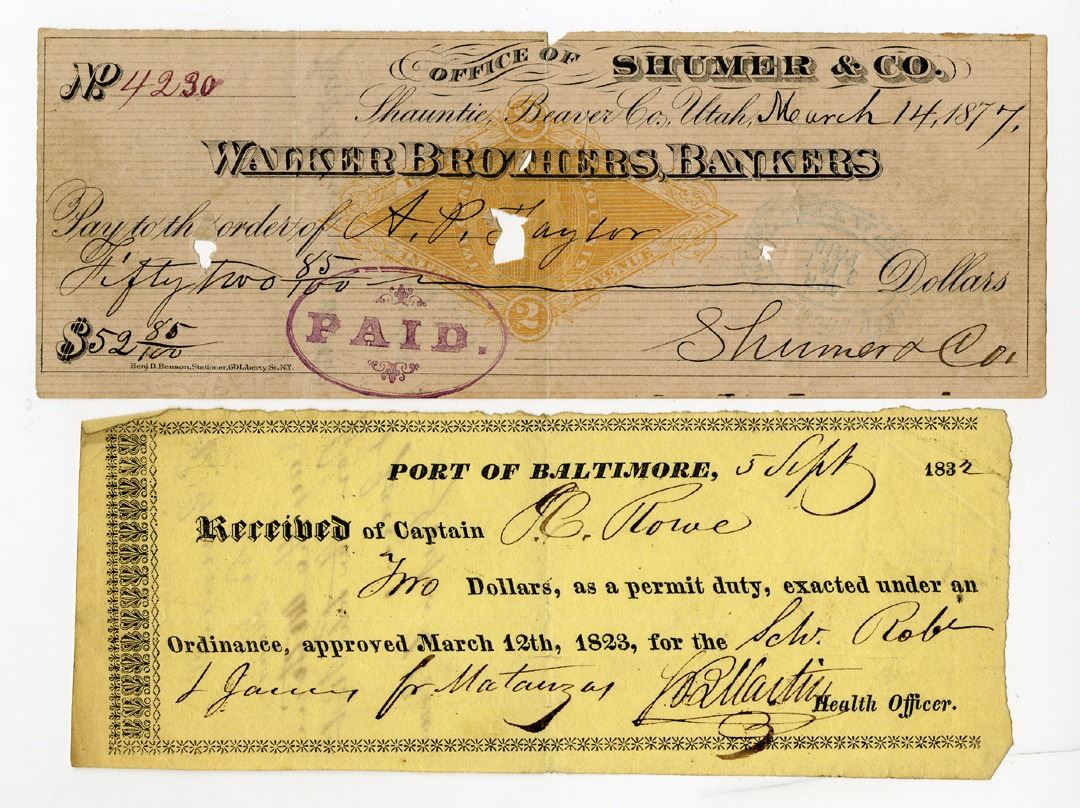 No. 4230
OFFICE OF SHUMER & CO.
Shauntie, Beaver Co., Utah, March 14, 1877.
WALKER BROTHERS, BANKERS
Pay to the order of A. P. Taylor
Fifty two 85/100 Dollars
$52 85/100
PAID.
Shumer & Co.
Benj D. Benson, Stationer, 60 Liberty St. N.Y.
2
2
INTERNAL REVENUE
PORT OF BALTIMORE, 5 Sept 1832
Received of Captain R. Rowe
Two Dollars, as a permit duty, exacted under an
Ordinance, approved March 12th, 1823, for the Schr. Robt
& James fr Matanzas Martin Health Officer.